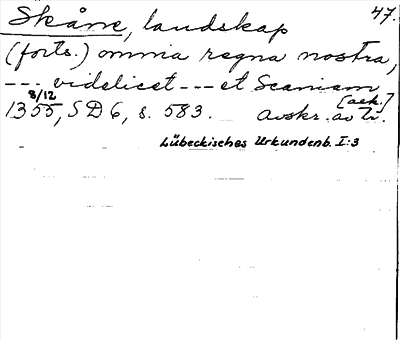 47.
Skåne, landskap
(forts.) omnia regna nostra,
--- videlicet --- et Scaniam
[ack.]
8/12
1355, SD 6, s. 583. avskr. av tr.
Lübeckisches Urkundenb. I:3